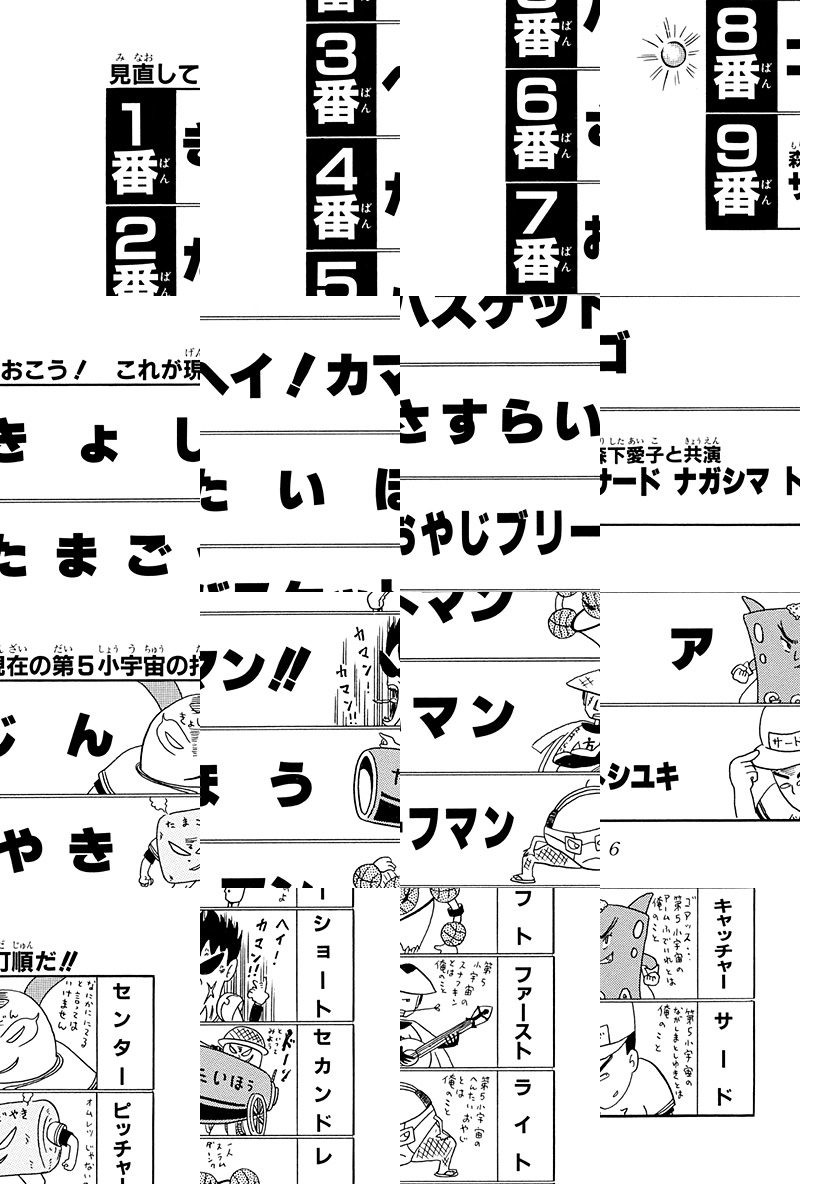 見直しておこう！ これが現在の第5小宇宙の打順だ!!
1番 きょじん センター
なにかににてる
と言っては
いけません
2番 たまごやき ピッチャー
オムレツじゃない
3番 ヘイ！カマン!! ショート
カマン！
カマン!!
ヘイ！
カマン!!
4番 たいほう セカンド
たいほう
ドーン
といってみよう
5番 バスケットマン レフト
一人
ダンク
6番 さすらいマン ファースト
第5
小宇宙の
スナフキン
とは
俺のこと
7番 おやじブリーフマン ライト
第5小宇宙の
へんたいおやじ
とは
俺のこと
8番 ゴア キャッチャー
ゴアッス…
第5小宇宙の
アムふでいれとは
俺のこと
9番 森下愛子と共演
サード ナガシマ トシユキ サード
サード
第5小宇宙の
ながしまとしゆきとは
俺のこと
6